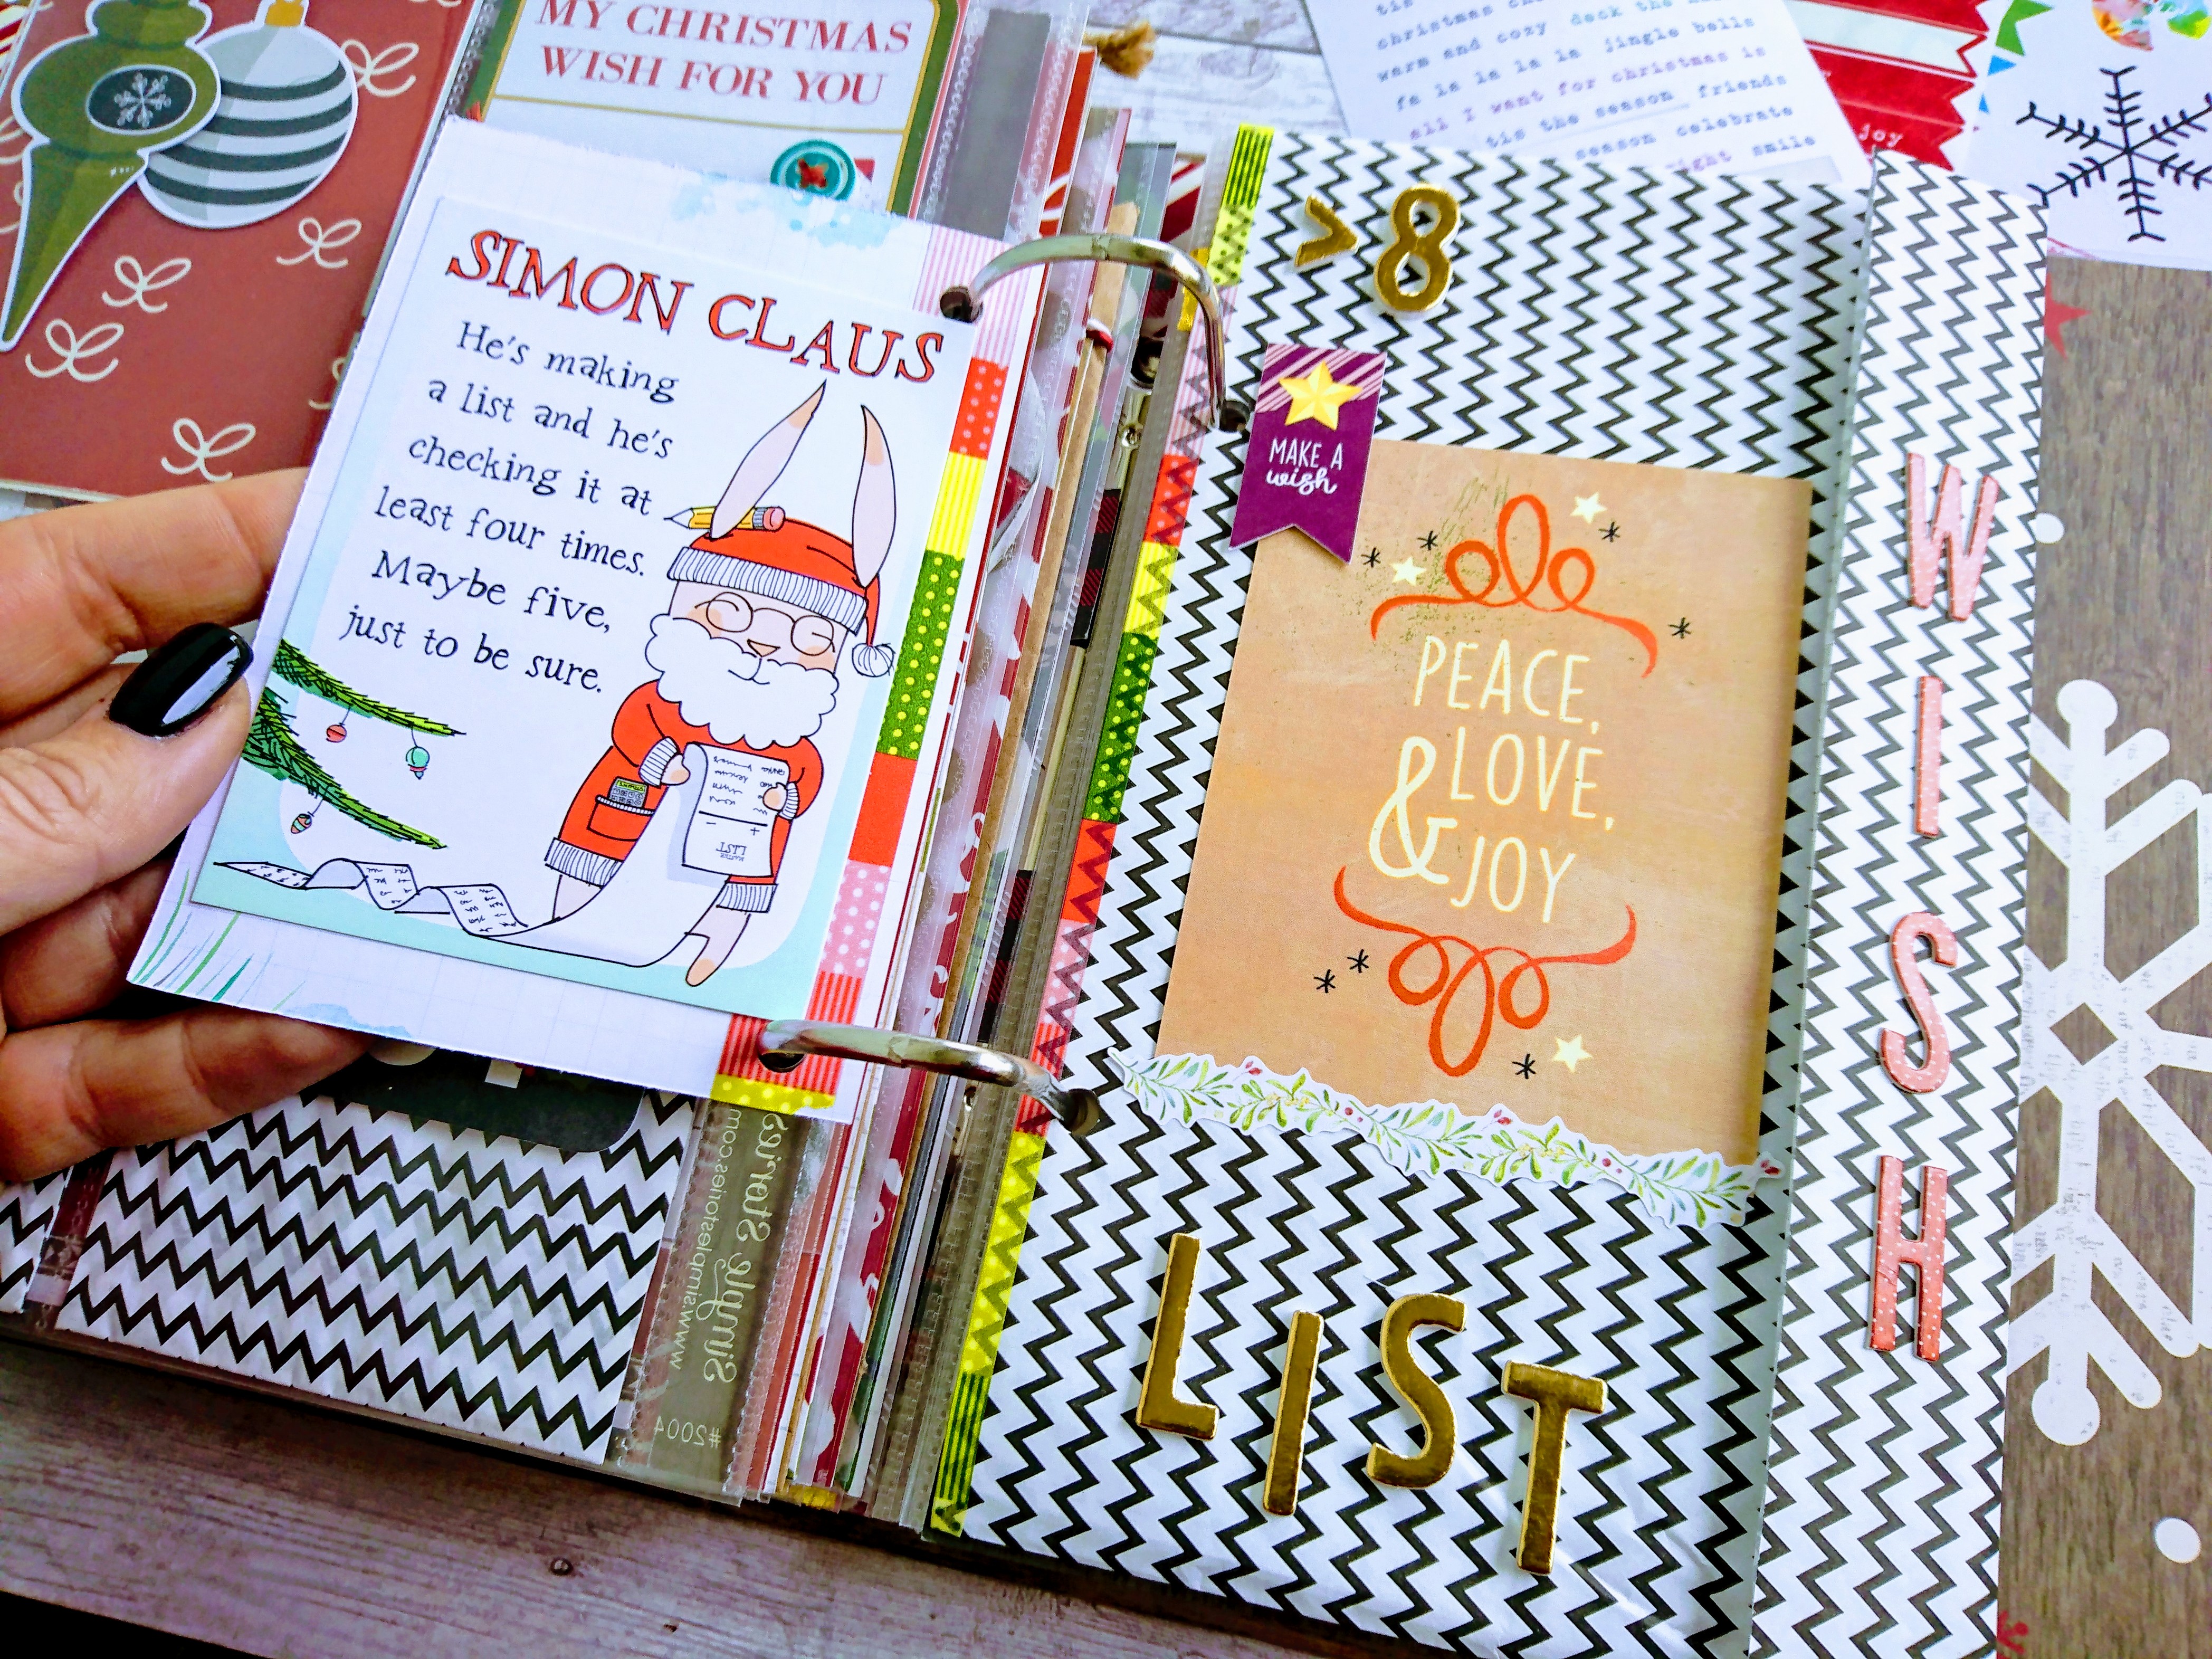 MY CHRISTMAS
WISH FOR YOU
SIMON CLAUS
He's making
a list and he's
checking it at
least four times.
Maybe five,
just to be sure.
LIST
Simple Stories
www.simplestories.com
#2004
tis
warm and cozy deck the
jingle bells
fa la la la la
all I want for christmas is
tis the season friends
season celebrate
smile
joy
>8
MAKE A
wish
PEACE,
LOVE,
& JOY
LIST
WISH